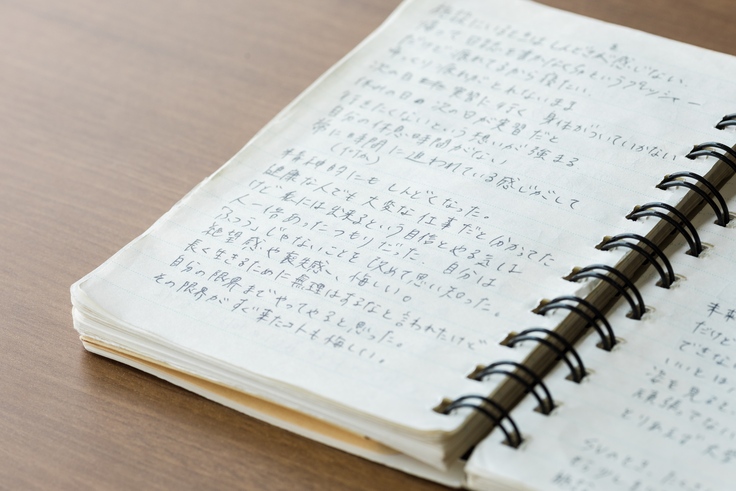 施設にいるときはしんどさを感じない
帰って日誌を書かなくちゃというプレッシャー
だけど疲れてるから寝たい
ゆっくり 疲れがとれないまま
次の日 実習に行く 身体がついていかない
休みの日の次の日が実習だと
行きたくないという想いが強まる
自分の休息の時間がない!
常に時間に追われている感じがして
精神的にもしんどくなった。
健康な人でも大変な仕事だと分かってた
けど私には出来るという自信とやる気は
人一倍あったつもりだった。自分は
「ふつう」じゃないことを改めて思い知った。
絶望感や喪失感、悔しい。
長く生きるために無理はするなと言われたけど
自分の限界までやってやると思った。
その限界がすぐ来たコトも悔しい。
未来
だけど
できな
いいとは
姿を見ると
頑張ってな
とりあえず大